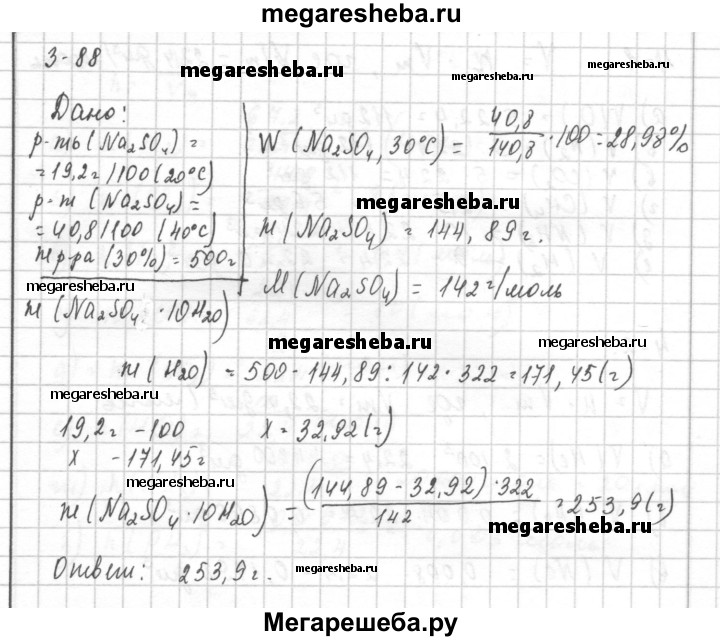 megaresheba.ru
3-88
megaresheba.ru
megaresheba.ru
Дано:
р-ть (Na2SO4) =
= 19,2г/100 (20°C)
р-т (Na2SO4) =
= 40,8/100 (40°C)
m р-ра (30%) = 500г
megaresheba.ru
m (Na2SO4 · 10H2O)
W (Na2SO4, 30°C) = 40,8/140,8 · 100 = 28,98%
megaresheba.ru
m (Na2SO4) = 144,89г.
M (Na2SO4) = 142 г/моль
megaresheba.ru
m (H2O) = 500 - 144,89 : 142 · 322 = 171,45 (г)
megaresheba.ru
19,2г - 100 x = 32,92 (г)
x - 171,45г
megaresheba.ru
m (Na2SO4 · 10H2O) = (144,89 - 32,92) · 322 / 142 = 253,9 (г)
megaresheba.ru
Ответ: 253,9г.
megaresheba.ru
megaresheba.ru
Мегарешеба.ру